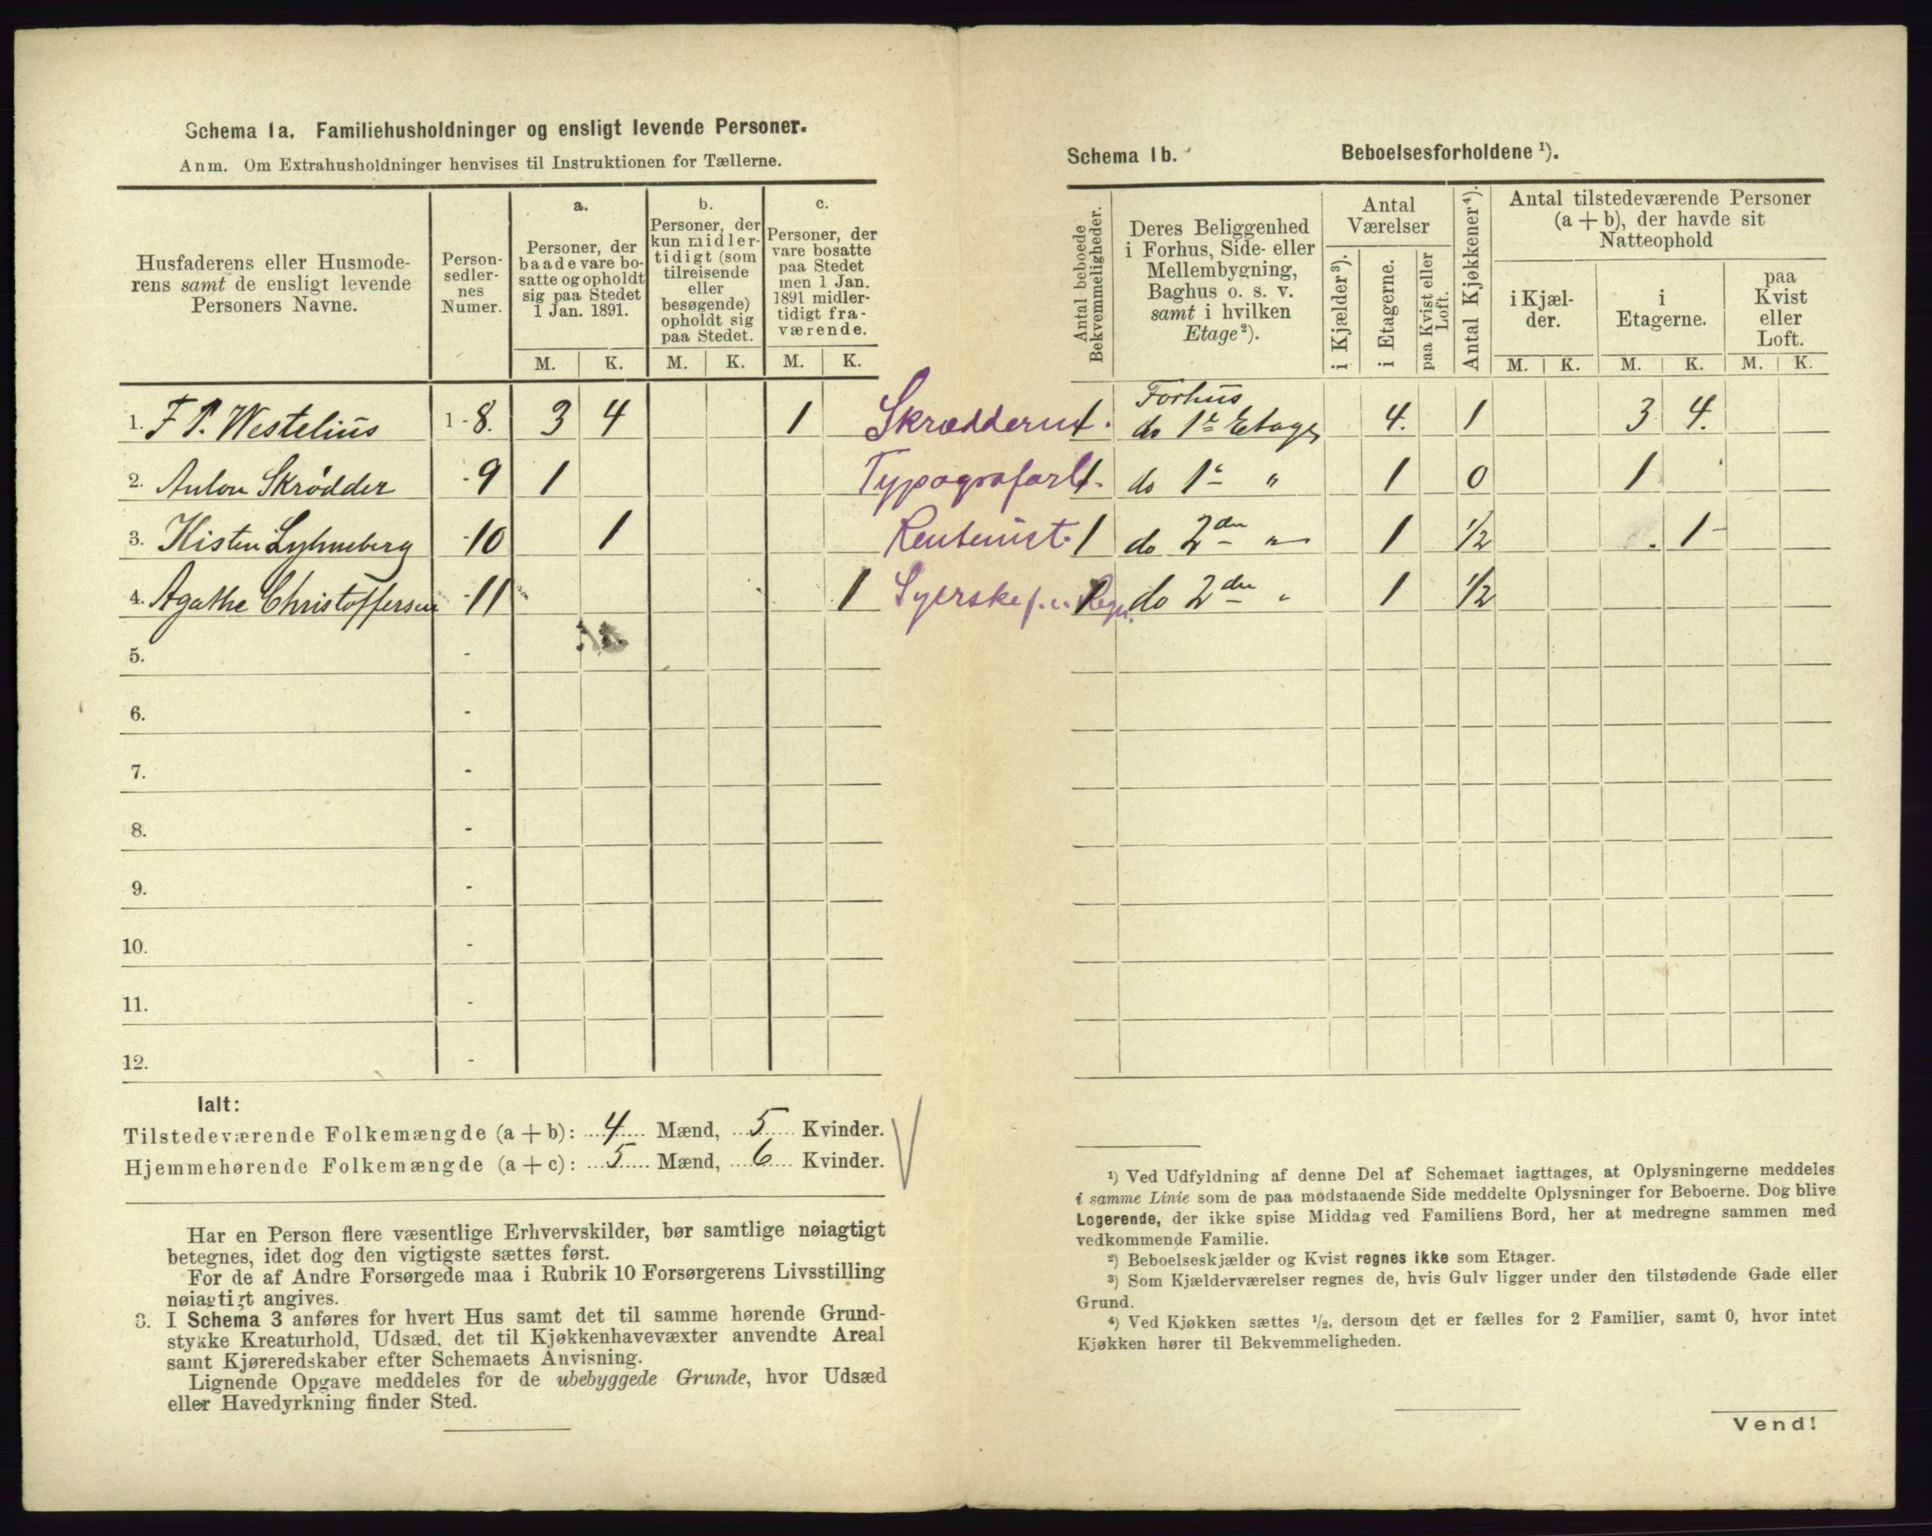 Schema 1a. Familiehusholdninger og ensligt levende Personer.
Anm. Om Extrahusholdninger henvises til Instruktionen for Tællerne.
Husfaderens eller Husmode-
rens samt de ensligt levende
Personers Navne.
Person-
sedler-
nes
Numer.
a.
Personer, der
baade vare bo-
satte og opholdt
sig paa Stedet
1 Jan. 1891.
b.
Personer, der
kun midler-
tidigt (som
tilreisende
eller
besøgende)
opholdt sig
paa Stedet.
c.
Personer, der
vare bosatte
paa Stedet
men 1 Jan.
1891 midler-
tidigt fra-
værende.
M. K. M. K. M. K.
1. F P. Westelius 1 - 8. 3 4 1 Skrædderm
2. Anton Skrødder - 9 1 Typografarb.
3. Kisten Lyhneberg - 10 1 Rentenist.
4. Agathe Christoffersen - 11 1 Syerske f. e. Regn.
5. -
6. -
7. -
8. -
9. -
10. -
11. -
12. -
Ialt:
Tilstedeværende Folkemængde (a + b): 4 Mænd, 5 Kvinder.
Hjemmehørende Folkemængde (a + c): 5 Mænd, 6 Kvinder.
Har en Person flere væsentlige Erhvervskilder, bør samtlige nøiagtigt
betegnes, idet dog den vigtigste sættes først.
For de af Andre Forsørgede maa i Rubrik 10 Forsørgerens Livsstilling
nøiagtigt angives.
3. I Schema 3 anføres for hvert Hus samt det til samme hørende Grund-
stykke Kreaturhold, Udsæd, det til Kjøkkenhavevæxter anvendte Areal
samt Kjøreredskaber efter Schemaets Anvisning.
Lignende Opgave meddeles for de ubebyggede Grunde, hvor Udsæd
eller Havedyrkning finder Sted.
Schema 1b. Beboelsesforholdene ¹).
Antal beboede
Bekvemmeligheder.
Deres Beliggenhed
i Forhus, Side- eller
Mellembygning,
Baghus o. s. v.
samt i hvilken
Etage²).
Antal
Værelser
i Kjælder³).
i Etagerne.
paa Kvist eller
Loft.
Antal Kjøkkener⁴).
Antal tilstedeværende Personer
(a + b), der havde sit
Natteophold
i Kjæl-
der.
i
Etagerne.
paa
Kvist
eller
Loft.
M. K. M. K. M. K.
Forhus
1. do 1e Etage 4. 1 3 4.
1. do 1e " 1 0 1
1 do 2den " 1 1/2 1
1 do 2den " 1 1/2
¹) Ved Udfyldning af denne Del af Schemaet iagttages, at Oplysningerne meddeles
i samme Linie som de paa modstaaende Side meddelte Oplysninger for Beboerne. Dog blive
Logerende, der ikke spise Middag ved Familiens Bord, her at medregne sammen med
vedkommende Familie.
²) Beboelseskjælder og Kvist regnes ikke som Etager.
³) Som Kjælderværelser regnes de, hvis Gulv ligger under den tilstødende Gade eller
Grund.
⁴) Ved Kjøkken sættes ½, dersom det er fælles for 2 Familier, samt 0, hvor intet
Kjøkken hører til Bekvemmeligheden.
Vend!